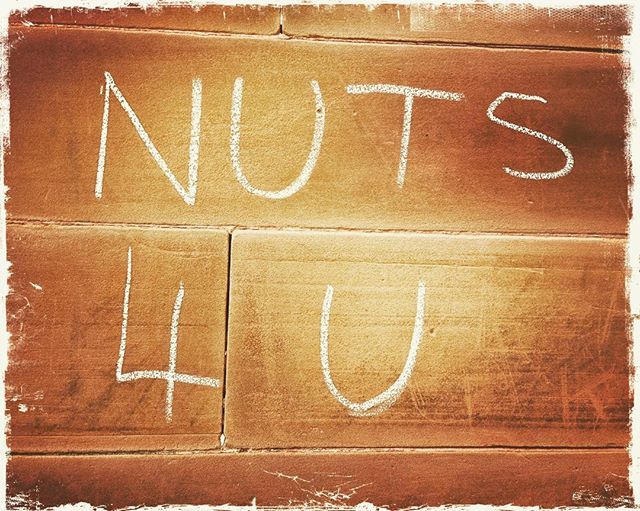 NUTS
4 U